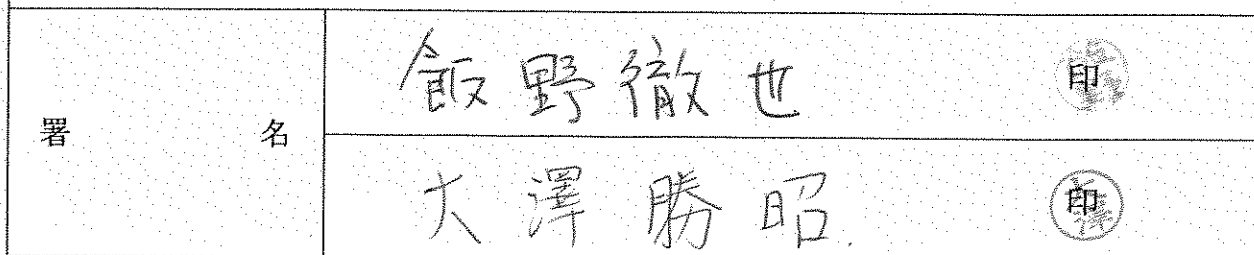 署名
飯野徹也 印
大澤勝昭 印